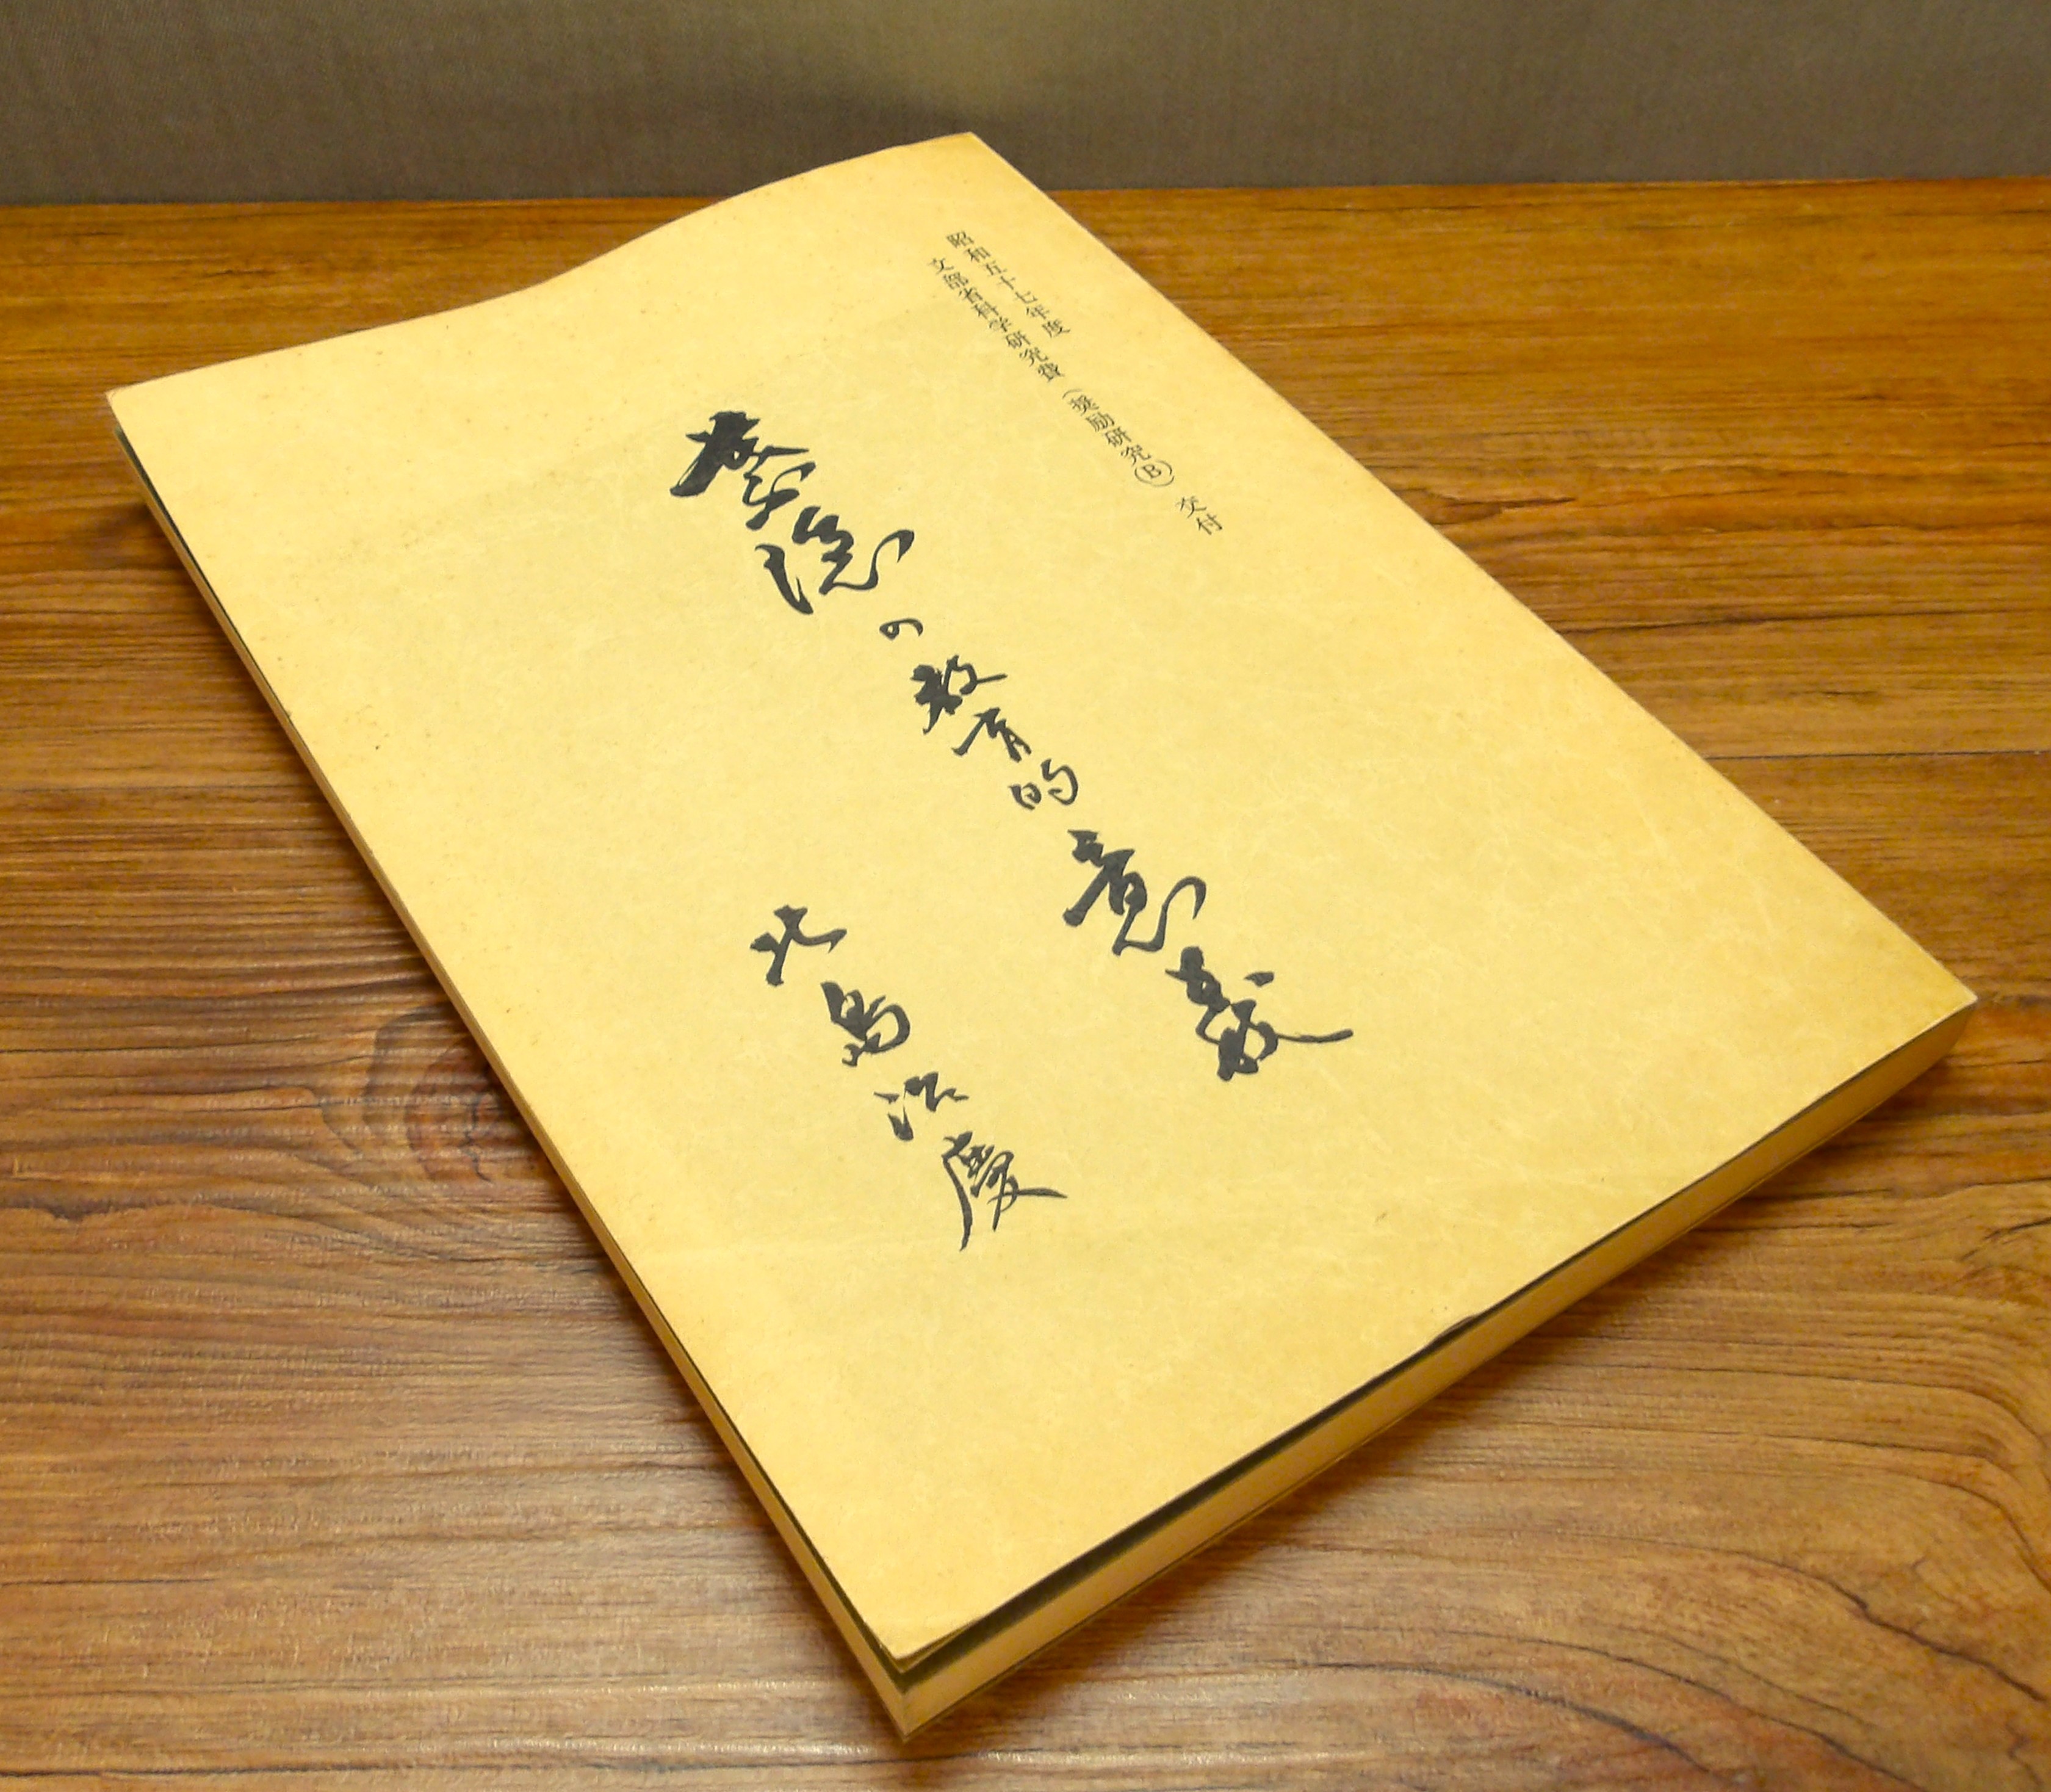 昭和五十七年度
文部省科学研究費（奨励研究Ⓑ）交付
葉隠の教育的意義
北島治慶